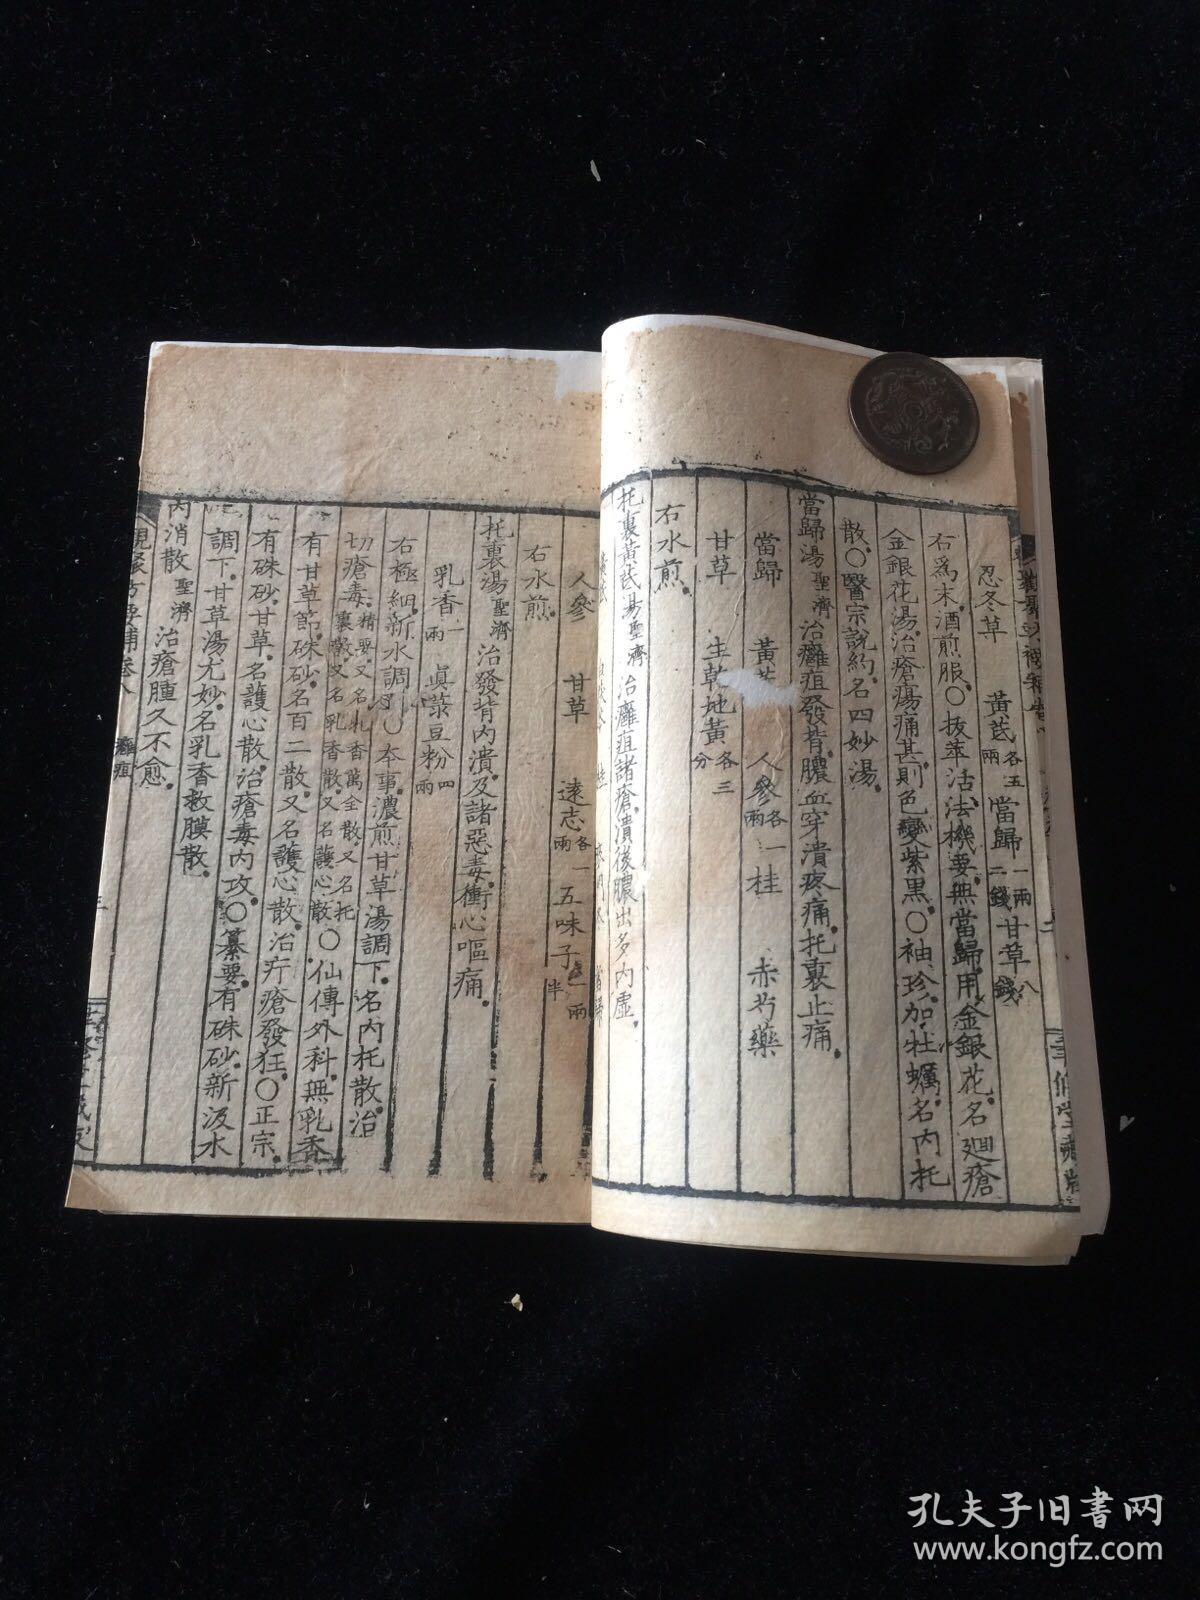 忍冬草 黃芪各五兩 當歸一兩二錢 甘草八錢
右為末酒煎服○拔萃活法機要無當歸用金銀花名迴瘡
金銀花湯治瘡瘍痛甚則色變紫黑○袖珍加牡蠣名內托
散○醫宗說約名四妙湯
當歸湯聖濟治癰疽發背膿血穿潰疼痛托裏止痛
當歸 黃 人參各一兩 桂 赤芍藥
甘草 生乾地黃各三分
右水煎
托裏黃芪湯聖濟治癰疽諸瘡潰後膿出多內虛
人參 甘草 遠志各一兩 五味子一兩半
右水煎
托裏湯聖濟治發背內潰及諸惡毒衝心嘔痛
乳香一兩 眞菉豆粉四兩
右極細新水調○本事濃煎甘草湯調下名內托散治
切瘡毒精要又名乳香萬金散又名托裏散又名乳香散又名護心散○仙傳外科無乳香
有甘草節硃砂名百二散又名護心散治疔瘡發狂○正宗
有硃砂甘草名護心散治瘡毒內攻○纂要有硃砂新汲水
調下甘草湯尤妙名乳香救膜散
內消散聖濟治瘡腫久不愈
觀聚方要補卷八 癰疽 三
孔夫子旧书网
www.kongfz.com